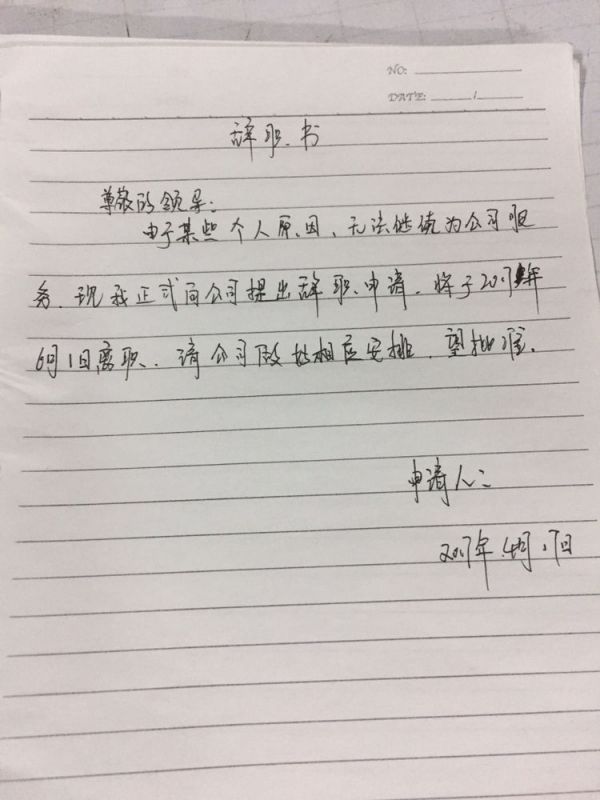 NO:
DATE: /
辞职书
尊敬的领导:
由于某些个人原因、无法继续为公司服
务.现我正式向公司提出辞职申请.将于2017年
6月1日离职.请公司做好相应安排.望批准.
申请人:
2017年.4月.17日